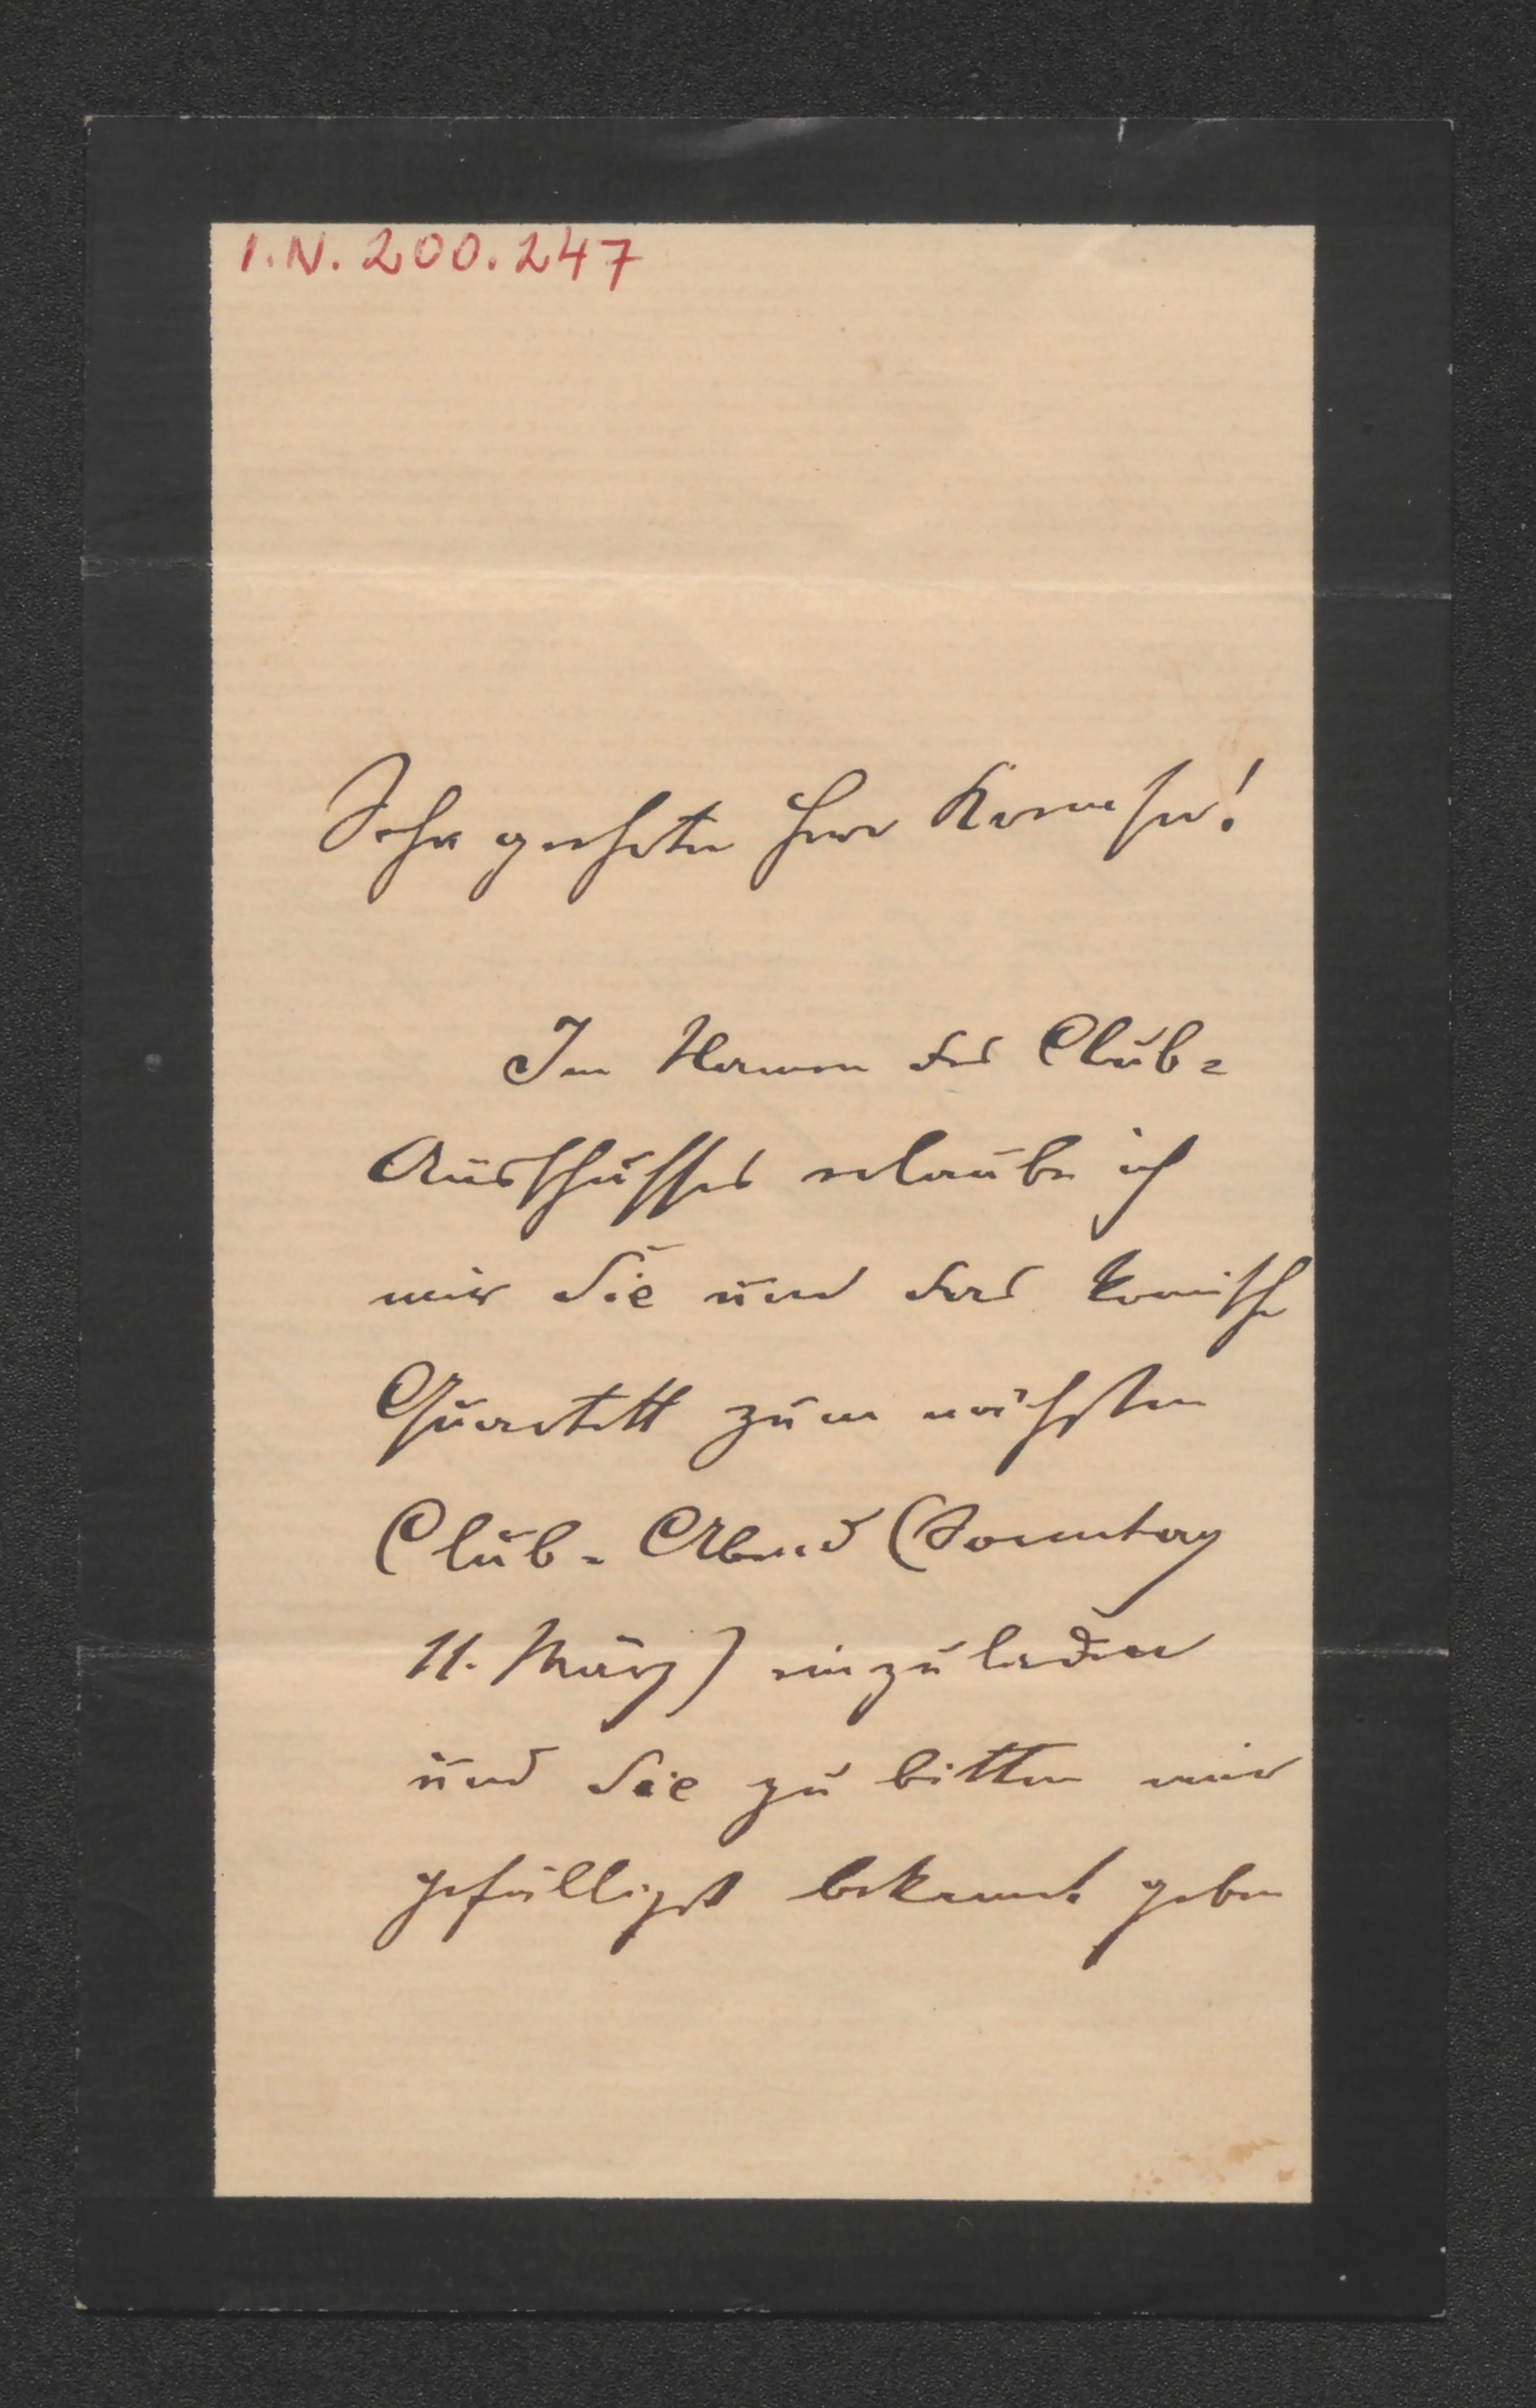 I.N. 200.247
Sehr geehrter Herr
Im Namen des Club-
Ausschusses erlaube ich
mir Sie und das komische
Quartett zum nächsten
Club-Abend (Sonntag
11. März) einzuladen
und Sie zu bitten mir
gefälligst bekannt geben